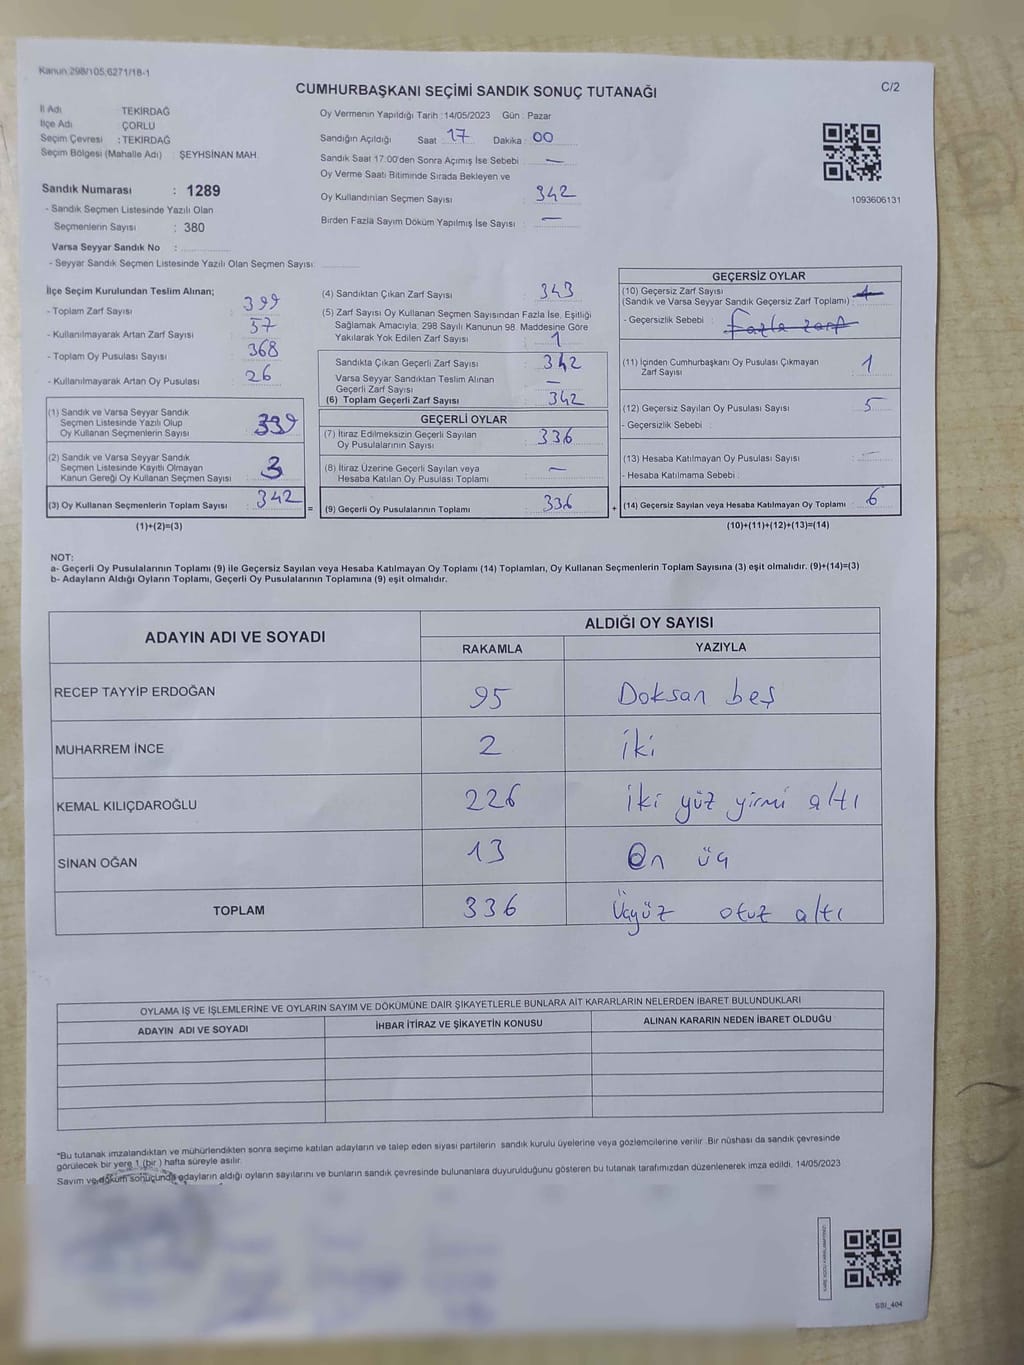 Kanun:298/105;6271/18-1
C/2
CUMHURBAŞKANI SEÇİMİ SANDIK SONUÇ TUTANAĞI
İl Adı TEKİRDAĞ
İlçe Adı : ÇORLU
Seçim Çevresi : TEKİRDAĞ
Seçim Bölgesi (Mahalle Adı) : ŞEYHSİNAN MAH.
Sandık Numarası : 1289
- Sandık Seçmen Listesinde Yazılı Olan
Seçmenlerin Sayısı : 380
Varsa Seyyar Sandık No :
- Seyyar Sandık Seçmen Listesinde Yazılı Olan Seçmen Sayısı:
Oy Vermenin Yapıldığı Tarih :14/05/2023 Gün : Pazar
Sandığın Açıldığı Saat : 17 Dakika : 00
Sandık Saat 17:00'den Sonra Açımış İse Sebebi : —
Oy Verme Saati Bitiminde Sırada Bekleyen ve
Oy Kullandırılan Seçmen Sayısı : 342
Birden Fazla Sayım Döküm Yapılmış İse Sayısı : —
1093606131
İlçe Seçim Kurulundan Teslim Alınan;
- Toplam Zarf Sayısı : 399
- Kullanılmayarak Artan Zarf Sayısı : 57
- Toplam Oy Pusulası Sayısı : 368
- Kullanılmayarak Artan Oy Pusulası : 26
(1) Sandık ve Varsa Seyyar Sandık
Seçmen Listesinde Yazılı Olup
Oy Kullanan Seçmenlerin Sayısı : 339
(2) Sandık ve Varsa Seyyar Sandık
Seçmen Listesinde Kayıtlı Olmayan
Kanun Gereği Oy Kullanan Seçmen Sayısı : 3
(3) Oy Kullanan Seçmenlerin Toplam Sayısı : 342
(1)+(2)=(3)
(4) Sandıktan Çıkan Zarf Sayısı : 343
(5) Zarf Sayısı Oy Kullanan Seçmen Sayısından Fazla İse, Eşitliği
Sağlamak Amacıyla; 298 Sayılı Kanunun 98. Maddesine Göre
Yakılarak Yok Edilen Zarf Sayısı : 1
Sandıkta Çıkan Geçerli Zarf Sayısı : 342
Varsa Seyyar Sandıktan Teslim Alınan
Geçerli Zarf Sayısı : —
(6) Toplam Geçerli Zarf Sayısı : 342
GEÇERLİ OYLAR
(7) İtiraz Edilmeksizin Geçerli Sayılan
Oy Pusulalarının Sayısı : 336
(8) İtiraz Üzerine Geçerli Sayılan veya
Hesaba Katılan Oy Pusulası Toplamı : —
= (9) Geçerli Oy Pusulalarının Toplamı : 336
GEÇERSİZ OYLAR
(10) Geçersiz Zarf Sayısı
(Sandık ve Varsa Seyyar Sandık Geçersiz Zarf Toplamı) : 1
- Geçersizlik Sebebi : Fazla zarf
(11) İçinden Cumhurbaşkanı Oy Pusulası Çıkmayan
Zarf Sayısı : 1
(12) Geçersiz Sayılan Oy Pusulası Sayısı : 5
- Geçersizlik Sebebi :
(13) Hesaba Katılmayan Oy Pusulası Sayısı : —
- Hesaba Katılmama Sebebi :
+ (14) Geçersiz Sayılan veya Hesaba Katılmayan Oy Toplamı : 6
(10)+(11)+(12)+(13)=(14)
NOT:
a- Geçerli Oy Pusulalarının Toplamı (9) ile Geçersiz Sayılan veya Hesaba Katılmayan Oy Toplamı (14) Toplamları, Oy Kullanan Seçmenlerin Toplam Sayısına (3) eşit olmalıdır. (9)+(14)=(3)
b- Adayların Aldığı Oyların Toplamı, Geçerli Oy Pusulalarının Toplamına (9) eşit olmalıdır.
ADAYIN ADI VE SOYADI
ALDIĞI OY SAYISI
RAKAMLA YAZIYLA
RECEP TAYYİP ERDOĞAN 95 Doksan beş
MUHARREM İNCE 2 iki
KEMAL KILIÇDAROĞLU 226 iki yüz yirmi altı
SİNAN OĞAN 13 On üç
TOPLAM 336 Üçyüz otuz altı
OYLAMA İŞ VE İŞLEMLERİNE VE OYLARIN SAYIM VE DÖKÜMÜNE DAİR ŞİKAYETLERLE BUNLARA AİT KARARLARIN NELERDEN İBARET BULUNDUKLARI
ADAYIN ADI VE SOYADI İHBAR İTİRAZ VE ŞİKAYETİN KONUSU ALINAN KARARIN NEDEN İBARET OLDUĞU
*Bu tutanak imzalandıktan ve mühürlendikten sonra seçime katılan adayların ve talep eden siyasi partilerin sandık kurulu üyelerine veya gözlemcilerine verilir .Bir nüshası da sandık çevresinde
görülecek bir yere 1 (bir ) hafta süreyle asılır.
Sayım ve döküm sonucunda adayların aldığı oyların sayılarını ve bunların sandık çevresinde bulunanlara duyurulduğunu gösteren bu tutanak tarafımızdan düzenlenerek imza edildi. 14/05/2023
SSI_404